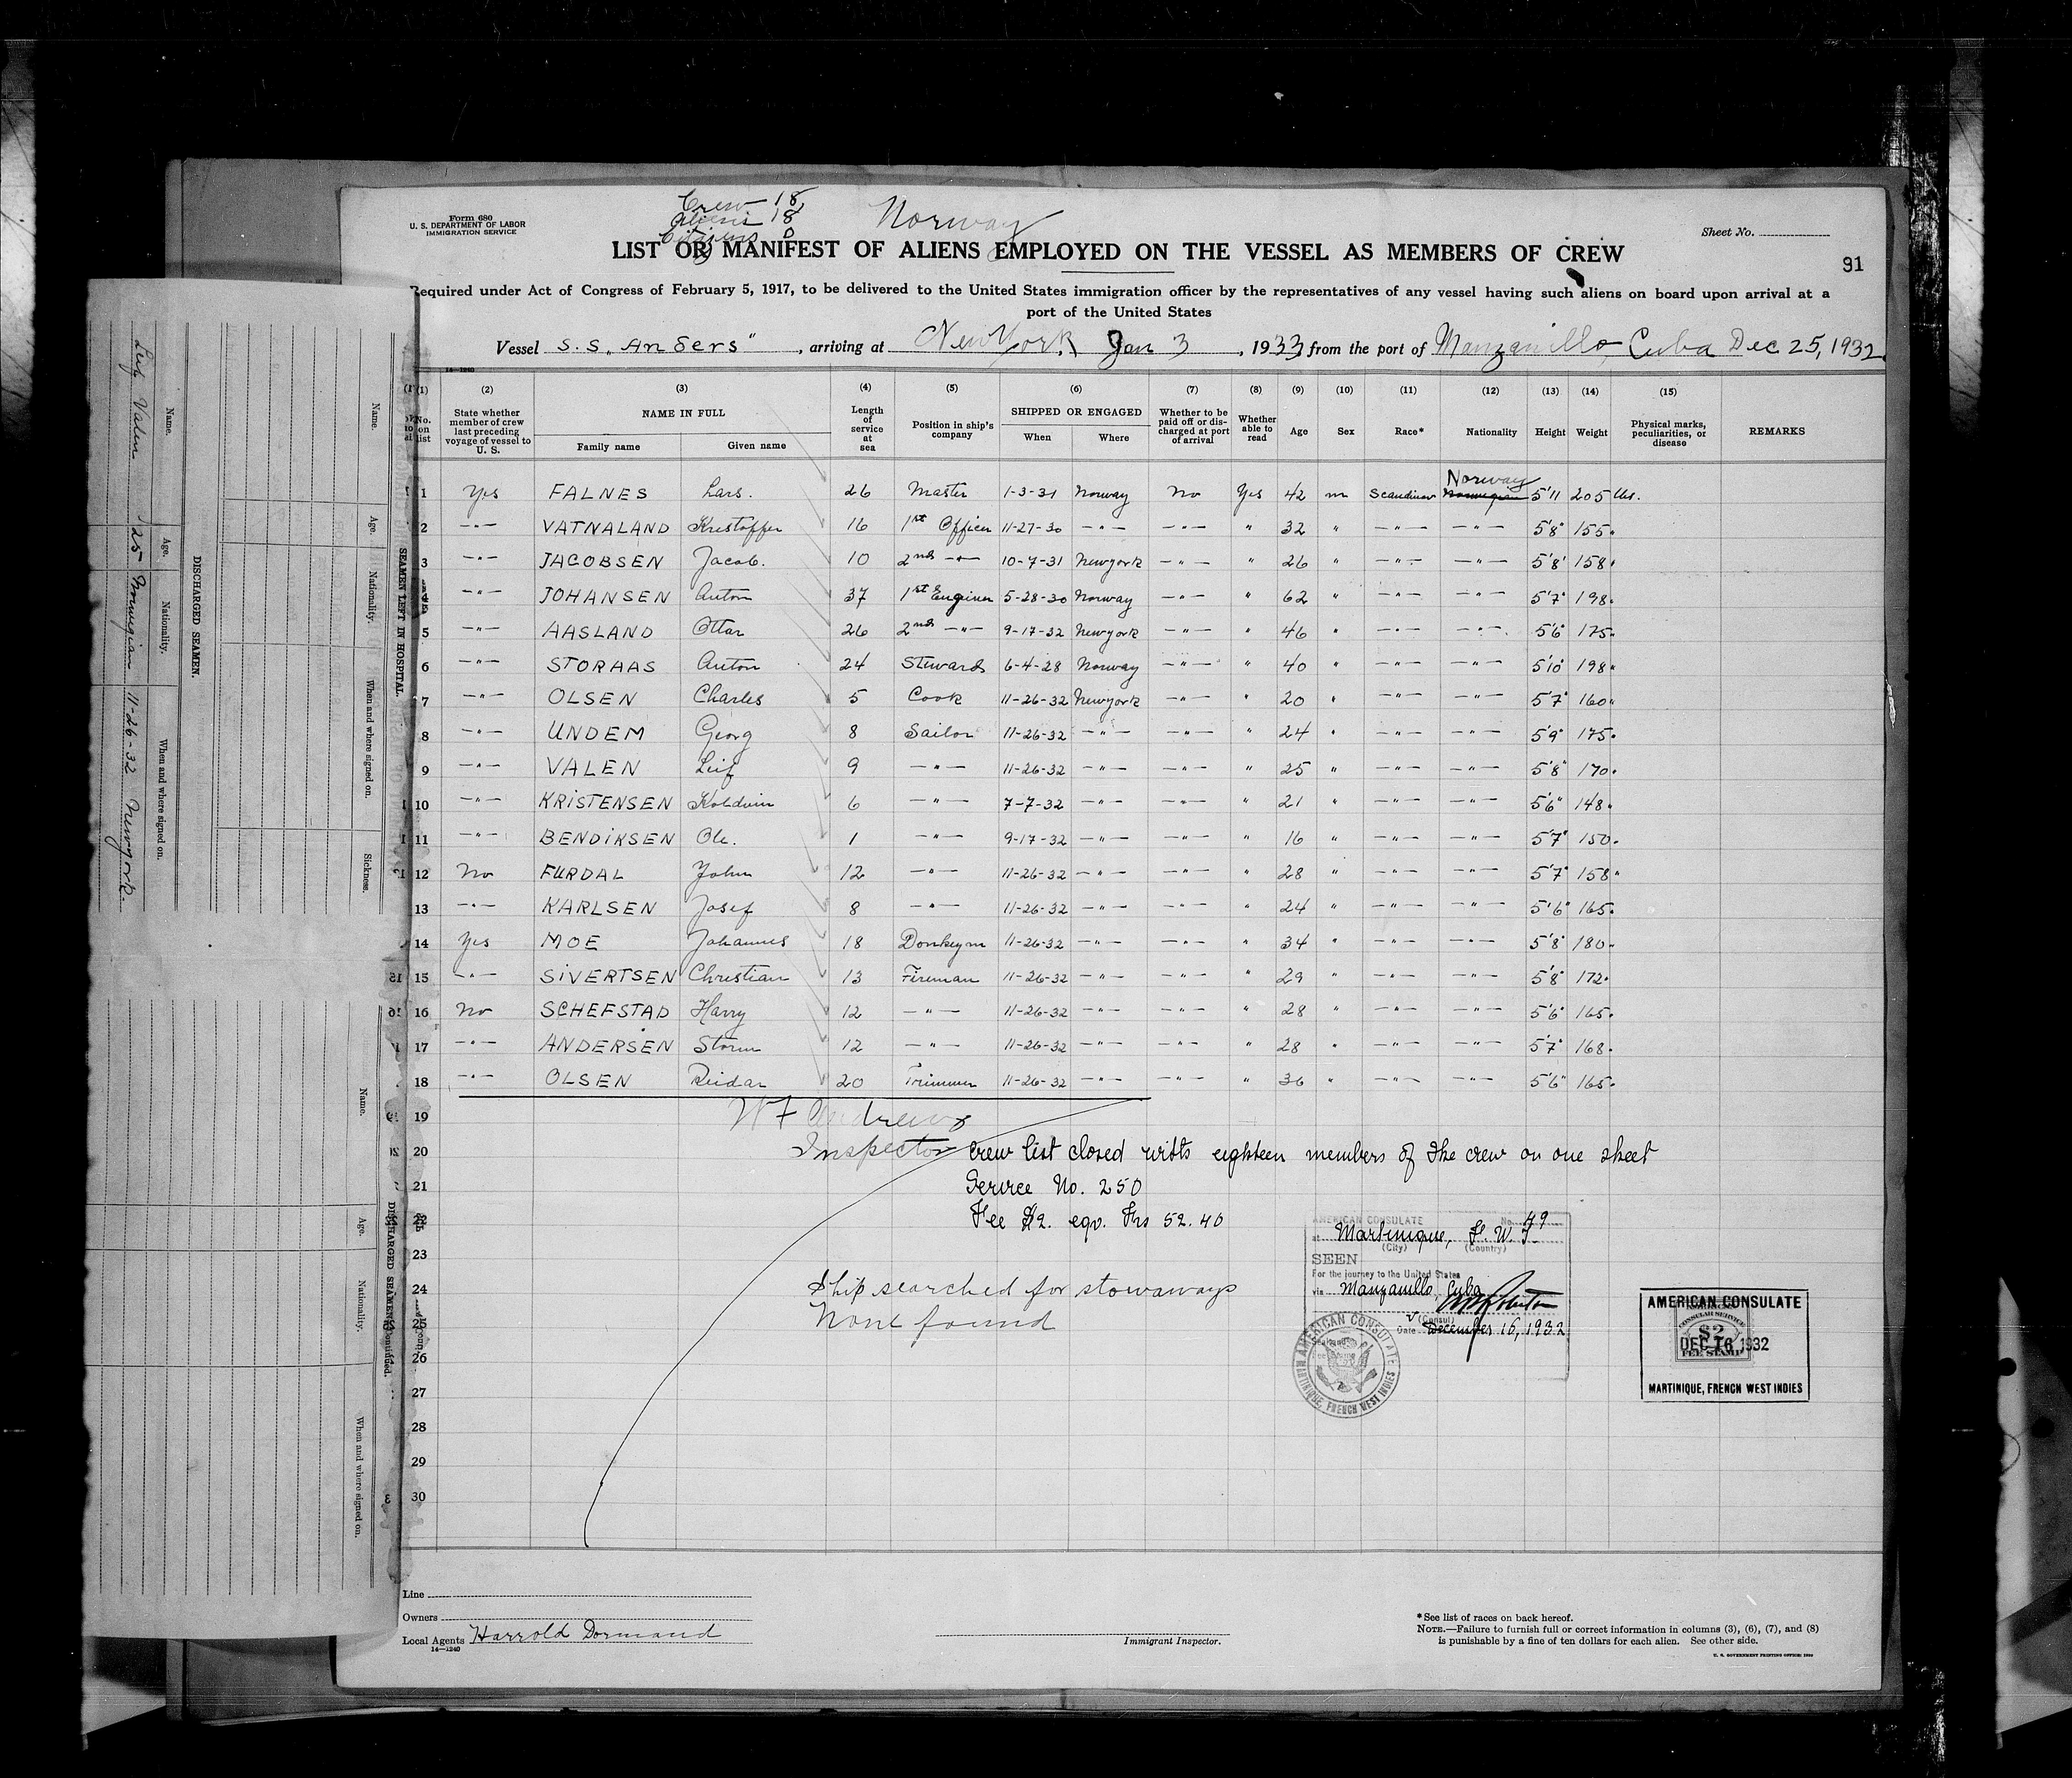 Crew 18
Aliens 18
Citizens 0
Norway
Form 680
U. S. DEPARTMENT OF LABOR
IMMIGRATION SERVICE
Sheet No.
LIST OR MANIFEST OF ALIENS EMPLOYED ON THE VESSEL AS MEMBERS OF CREW
91
Required under Act of Congress of February 5, 1917, to be delivered to the United States immigration officer by the representatives of any vessel having such aliens on board upon arrival at a
port of the United States
Vessel S.S. „Anders“, arriving at New York, Jan 3, 1933, from the port of Manzanillo, Cuba Dec 25, 1932
14—1240
(1) (2) (3) (4) (5) (6) (7) (8) (9) (10) (11) (12) (13) (14) (15)
No. on list State whether member of crew last preceding voyage of vessel to U. S. NAME IN FULL Family name Given name Length of service at sea Position in ship's company SHIPPED OR ENGAGED When Where Whether to be paid off or discharged at port of arrival Whether able to read Age Sex Race* Nationality Height Weight Physical marks, peculiarities, or disease REMARKS
Norway
1 Yes FALNES Lars. 26 Master 1-3-31 Norway No Yes 42 m Scandinav Norwegian 5'11 205 lbs.
2 —"— VATNALAND Kristoffer 16 1st Officer 11-27-30 —"— —"— " 32 " —"— —"— 5'8" 155"
3 —"— JACOBSEN Jacob. 10 2nd —"— 10-7-31 Newyork —"— " 26 " —"— —"— 5'8" 158"
4 —"— JOHANSEN Anton 37 1st Enginer 5-28-30 Norway —"— " 62 " —"— —"— 5'7" 198"
5 —"— AASLAND Ottar 26 2nd —"— 9-17-32 Newyork —"— " 46 " —"— —"— 5'6" 175"
6 —"— STORAAS Anton 24 Steward 6-4-28 Norway —"— " 40 " —"— —"— 5'10" 198"
7 —"— OLSEN Charles 5 Cook 11-26-32 Newyork —"— " 20 " —"— —"— 5'7" 160"
8 —"— UNDEM Georg 8 Sailor 11-26-32 —"— —"— " 24 " —"— —"— 5'9" 175"
9 —"— VALEN Leif 9 —"— 11-26-32 —"— —"— " 25 " —"— —"— 5'8" 170"
10 —"— KRISTENSEN Koldvin 6 —"— 7-7-32 —"— —"— " 21 " —"— —"— 5'6" 148"
11 —"— BENDIKSEN Ole. 1 —"— 9-17-32 —"— —"— " 16 " —"— —"— 5'7" 150"
12 No FURDAL John 12 —"— 11-26-32 —"— —"— " 28 " —"— —"— 5'7" 158"
13 —"— KARLSEN Josef 8 —"— 11-26-32 —"— —"— " 24 " —"— —"— 5'6" 165"
14 Yes MOE Johannes 18 Donkeym 11-26-32 —"— —"— " 34 " —"— —"— 5'8" 180"
15 —"— SIVERTSEN Christian 13 Fireman 11-26-32 —"— —"— " 29 " —"— —"— 5'8" 172"
16 No SCHEFSTAD Harry 12 —"— 11-26-32 —"— —"— " 28 " —"— —"— 5'6" 165"
17 —"— ANDERSEN Storm 12 —"— 11-26-32 —"— —"— " 28 " —"— —"— 5'7" 168"
18 —"— OLSEN Reidar 20 Trimmer 11-26-32 —"— —"— " 36 " —"— —"— 5'6" 165"
19 W F Andrews
20 Inspector Crew list closed with eighteen members of the crew on one sheet
21 Service No. 250
22 Fee $2. eqv. Frs 52.40
23
24 Ship searched for stowaways
25 None found
26
27
28
29
30
AMERICAN CONSULATE No. 49
at Martinique, F. W. I.
(City) (Country)
SEEN
For the journey to the United States
via Manzanillo, Cuba
(Consul)
Date December 16, 1932
AMERICAN CONSULATE
MARTINIQUE, FRENCH WEST INDIES
AMERICAN CONSULATE
CONSULAR SERVICE
$2
DEC 16 1932
FEE STAMP
MARTINIQUE, FRENCH WEST INDIES
Line
Owners
Local Agents Harrold Dormand
14—1240
Immigrant Inspector.
*See list of races on back hereof.
NOTE.—Failure to furnish full or correct information in columns (3), (6), (7), and (8)
is punishable by a fine of ten dollars for each alien. See other side.
U. S. GOVERNMENT PRINTING OFFICE: 1930
SEAMEN LEFT IN HOSPITAL.
Name. Age. Nationality. When and where signed on. Sickness.
DISCHARGED SEAMEN.
Name. Age. Nationality. When and where signed on.
Leif Valen 25 Norwegian 11-26-32 Newyork.
DISCHARGED SEAMEN—Continued.
Name. Age. Nationality. When and where signed on.